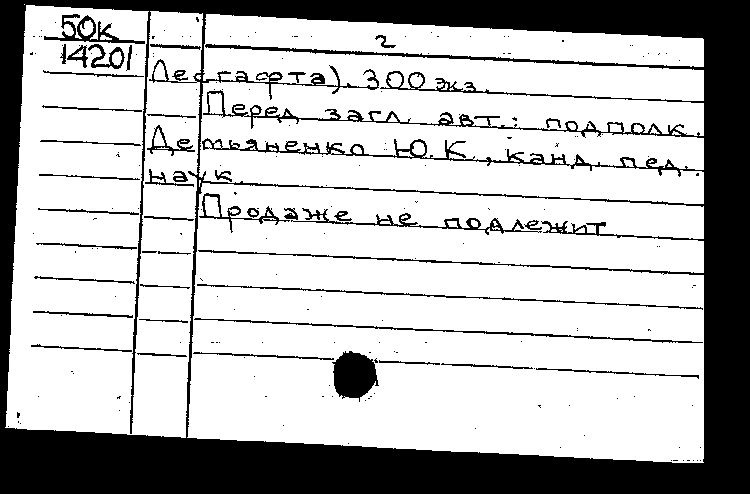 50к
14201
2
Лесгафта). 300 экз.
Перед загл. авт.: подполк.
Демьяненко Ю.К., канд. пед.
наук.
Продаже не подлежит